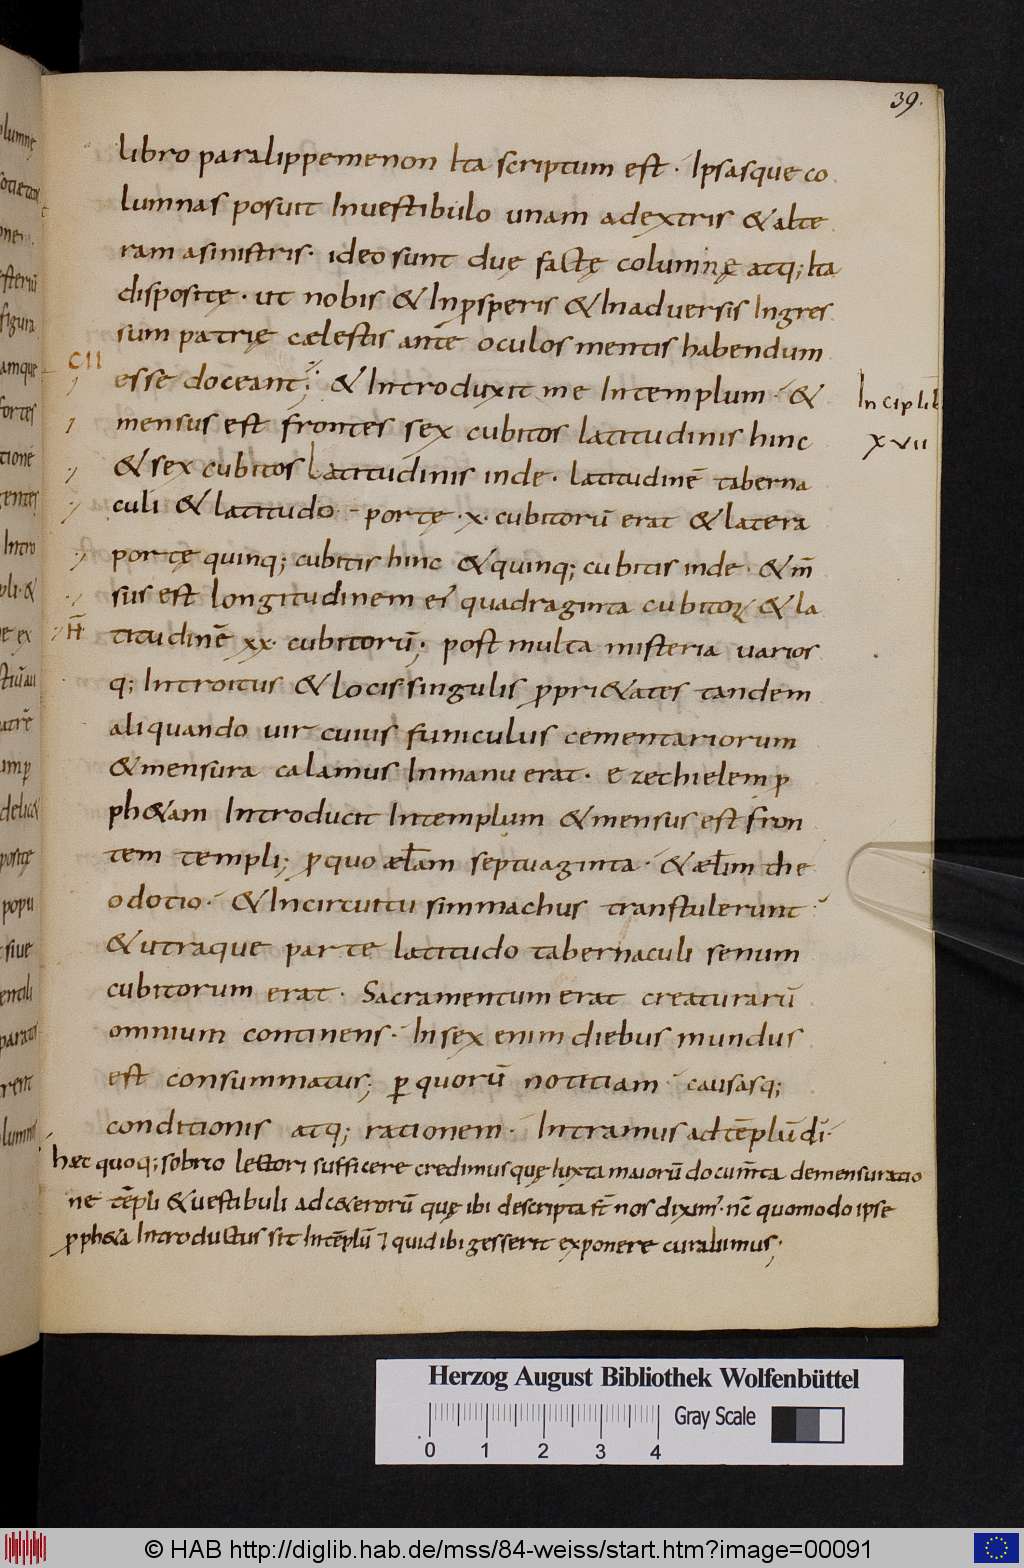 39.
libro paralippemenon Ita scriptum est · Ipsasque co
lumnas posuit Inuestibulo unam adextris & alte
ram asinistris · ideo sunt duę factę columnę atq; Ita
dispositę · ut nobis & Inp̱speris & Inaduersis Ingres
sum patrię cęlestis ante oculos mentis habendum
CII
esse doceant; & Introduxit me Intemplum · &
Incip lib
XVII
mensus est frontes sex cubitos latitudinis hinc
& sex cubitos Latitudinis inde · latitudinē taberna
culi & latitudo portę · x · cubitorū erat & latera
portę quinq; cubitis hinc & quinq; cubitis inde · & m̄
sus est longitudinem ei' quadraginta cubitoꝝ & la
titudinē xx · cubitorū; post multa misteria uarios
q; Introitus & locis singulis ꝓpri&ates tandem
aliquando uir cuius funiculus cementariorum
& mensura calamus Inmanu erat · ezechielem ꝓ
ph&am Introducit Intemplum & mensus est fron
tem templi; ꝓ quo ælam septuaginta · & ælim the
odotio · & Incircuitu simmachus transtulerunt
& utraque parte latitudo tabernaculi senum
cubitorum erat · Sacramentum erat creaturarū
omnium continens · In sex enim diebus mundus
est consummatus; ꝑ quorū notitiam causasq;
conditionis atq; rationem · Intramus ad tēplū dī ·
hæc quoq; sobrio lectori sufficere credimus quę Iuxta maiorū docum̄ta demensuratio
ne tēpli & uestibuli ad c&erorū quę ibi descripta st̄ nos dixim' · nc̄ quomodo ipse
ꝓph&a Introductus sit Intēplū ⁊ quid ibi gesserit exponere curabimus;
Herzog August Bibliothek Wolfenbüttel
Gray Scale
0 1 2 3 4
© HAB http://diglib.hab.de/mss/84-weiss/start.htm?image=00091